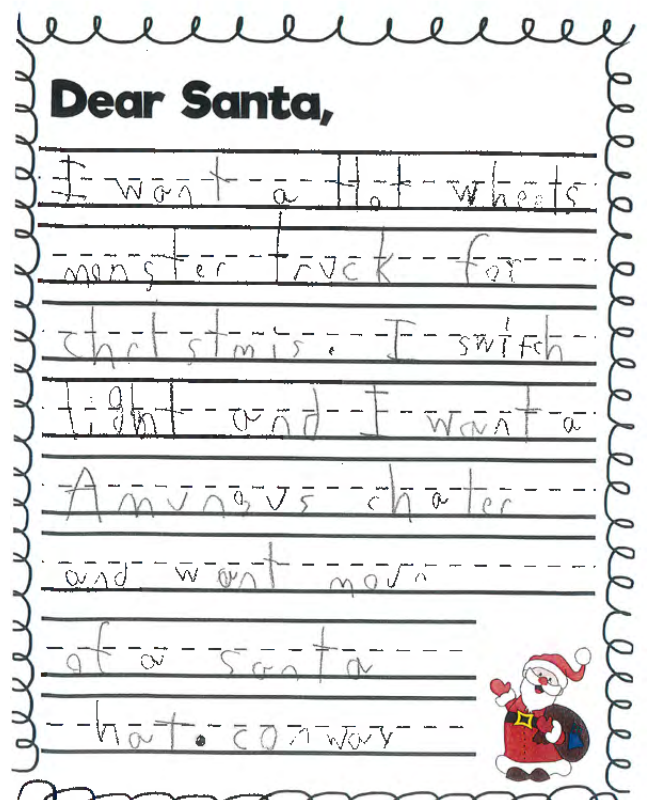 Dear Santa,
I want a Hot wheels
monster truck for
chrtstmis. I switch
Light and I want a
Amungus chater
and want morn
of a santa
hat. conway